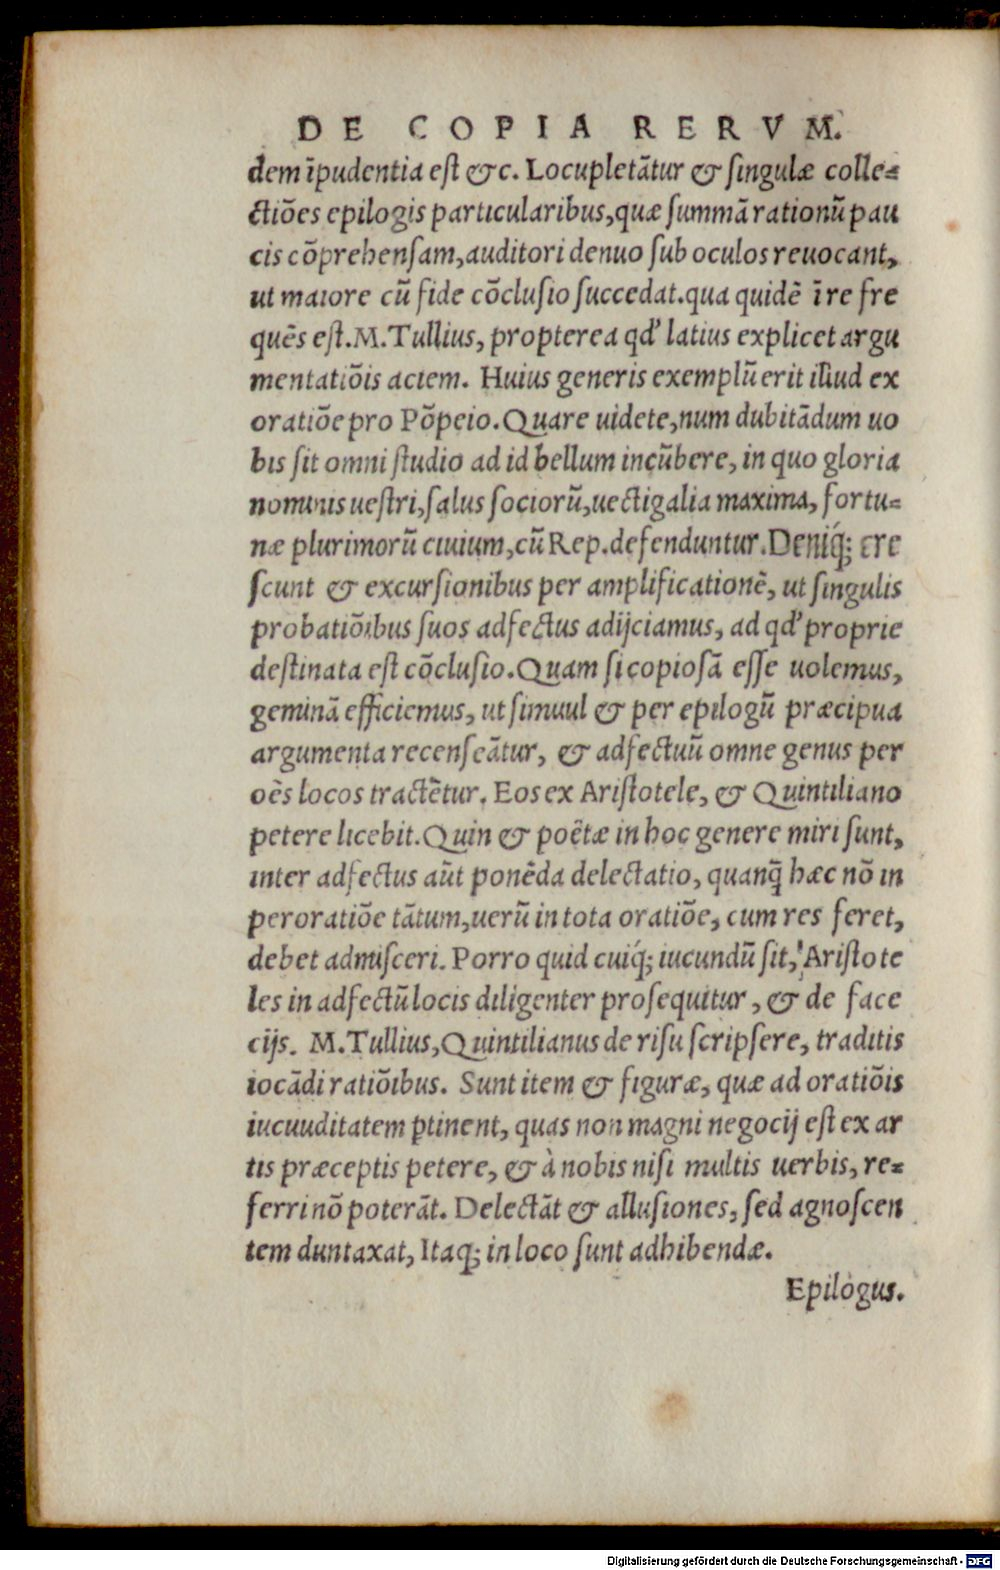 DE COPIA RERVM.
dem īpudentia est &c. Locupletātur & singulæ colle⸗
ctiōes epilogis particularibus,quæ summā rationū pau
cis cōprehensam,auditori denuo sub oculos reuocant,
ut maiore cū fide cōclusio succedat.qua quidē ī re fre
quēs est.M.Tullius, propterea qđ latius explicet argu
mentatiōis aciem. Huius generis exemplū erit illud ex
oratiōe pro Pōpeio.Quare uidete,num dubitādum uo
bis sit omni studio ad id bellum incūbere, in quo gloria
nominis uestri,salus sociorū,uectigalia maxima, fortu⸗
næ plurimorū ciuium,cū Rep.defenduntur.Deniq́; cre
scunt & excursionibus per amplificationē, ut singulis
probatiōibus suos adfectus adijciamus, ad qđ proprie
destinata est cōclusio.Quam si copiosā esse uolemus,
geminā efficiemus, ut simuul & per epilogū præcipua
argumenta recenseātur, & adfectuū omne genus per
oēs locos tractētur. Eos ex Aristotele, & Quintiliano
petere licebit.Quin & poëtæ in hoc genere miri sunt,
inter adfectus aūt ponēda delectatio, quanq̃ hæc nō in
peroratiōe tātum,uerū in tota oratiōe, cum res feret,
debet admisceri. Porro quid cuiq́; iucundū sit, Aristote
les in adfectū locis diligenter prosequitur, & de face
cijs. M.Tullius,Quintilianus de risu scripsere, traditis
iocādi ratiōibus. Sunt item & figuræ, quæ ad oratiōis
iucuuditatem ꝑtinent, quas non magni negocij est ex ar
tis præceptis petere, & à nobis nisi multis uerbis, re⸗
ferri nō poterāt. Delectāt & allusiones, sed agnoscen
tem duntaxat, Itaq; in loco sunt adhibendæ.
Epilogus.
Digitalisierung gefördert durch die Deutsche Forschungsgemeinschaft - DFG